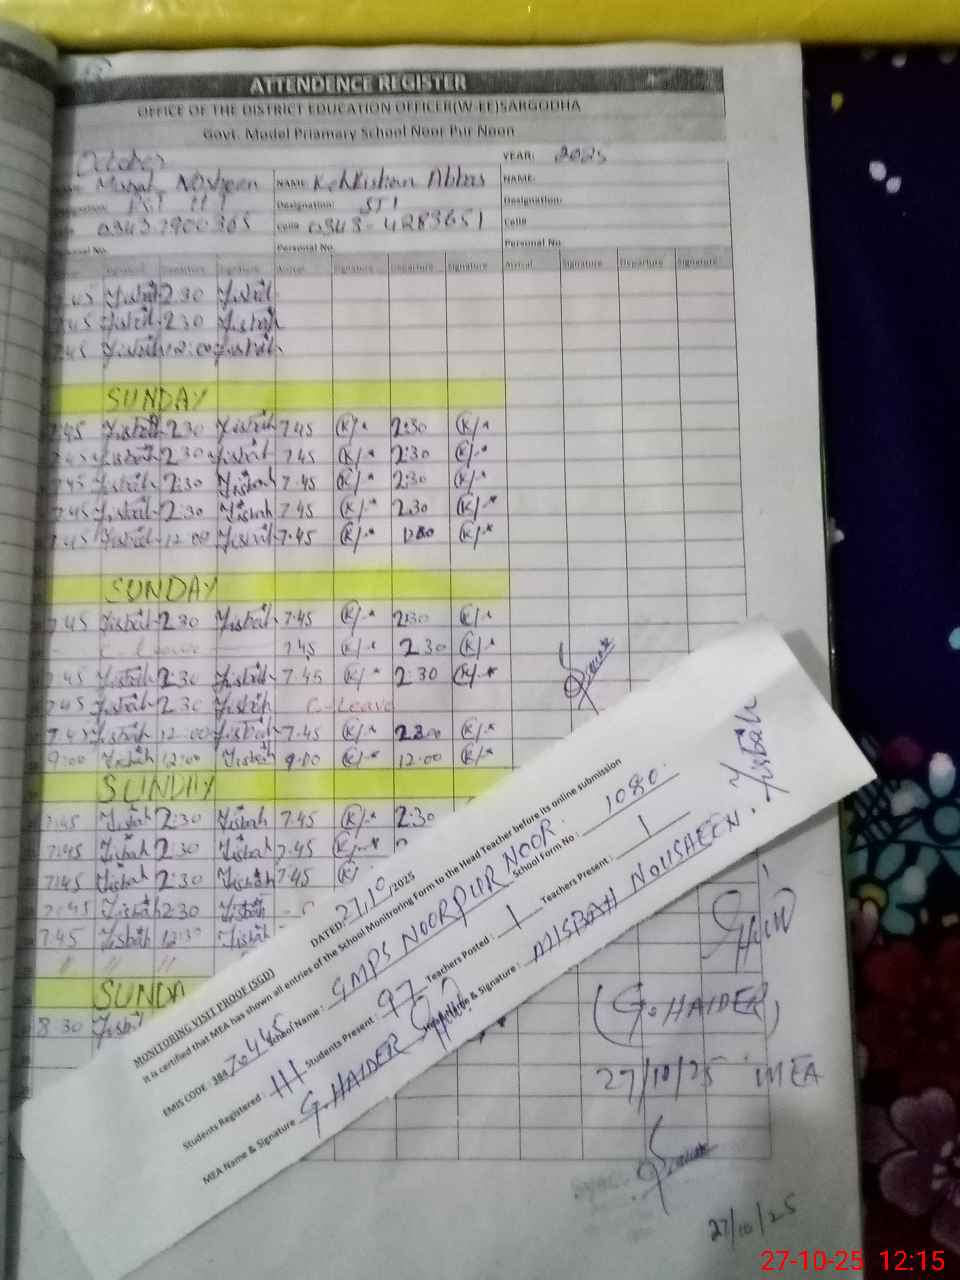 ATTENDENCE REGISTER
OFFICE OF THE DISTRICT EDUCATION OFFICER(W-EE)SARGODHA
Govt. Model Priamary School Noor Pur Noon
October YEAR: 2025
Misbah Nosheen NAME: Kehkishan Abbas NAME:
PST Designation: STI Designation:
0343 7900365 Cell# 0348-4283651 Cell#
Personal No. Personal No
Signature Departure Signature Arrival Signature Departure Signature Arrival Signature Departure Signature
7.45 Misbah 2:30 Misbah
7.45 Misbah 2:30 Misbah
7.45 Misbah 12:00 Misbah
SUNDAY
7.45 Misbah 2:30 Misbah 7.45 K 2:30 K
7.45 Misbah 2:30 Misbah 7.45 K 2:30 K
7.45 Misbah 2:30 Misbah 7.45 K 2:30 K
7.45 Misbah 2:30 Misbah 7.45 K 2:30 K
7.45 Misbah 12:00 Misbah 7.45 K K
SUNDAY
7.45 Misbah 2:30 Misbah 7.45 K 2:30 K
C-Leave 7.45 K 2:30 K
7.45 Misbah 2:30 Misbah 7.45 K 2:30 K
7.45 Misbah 2:30 Misbah C-Leave
7.45 Misbah 12:00 Misbah 7.45 K K
9:00 Misbah 12:00 Misbah 9:00 K 12:00 K
SUNDAY
7:45 Misbah 2:30 Misbah 7.45 K 2:30
7:45 Misbah 2:30 Misbah 7.45 K
7:45 Misbah 2:30 Misbah 7.45 K
7:45 Misbah 2:30 Misbah
7.45 Misbah 12:30 Misbah
" " "
SUNDA
8:30 Misbah
MONITORING VISIT PROOF (SGD) DATED: 27/10/2025
It is certified that MEA has shown all entries of the School Monitroring Form to the Head Teacher before its online submission
EMIS CODE: 3847-0445 School Name: GMPS NOORPUR NOOR. School Form No: 1080.
Students Registered: 111 Students Present: 97 Teachers Posted: 1 Teachers Present: 1
MEA Name & Signature: G. HAIDER Name & Signature: MISBAH NOUSHEEN. Misbah
(G. HAIDER)
27/10/25 MEA
27/10/25
27-10-25 12:15